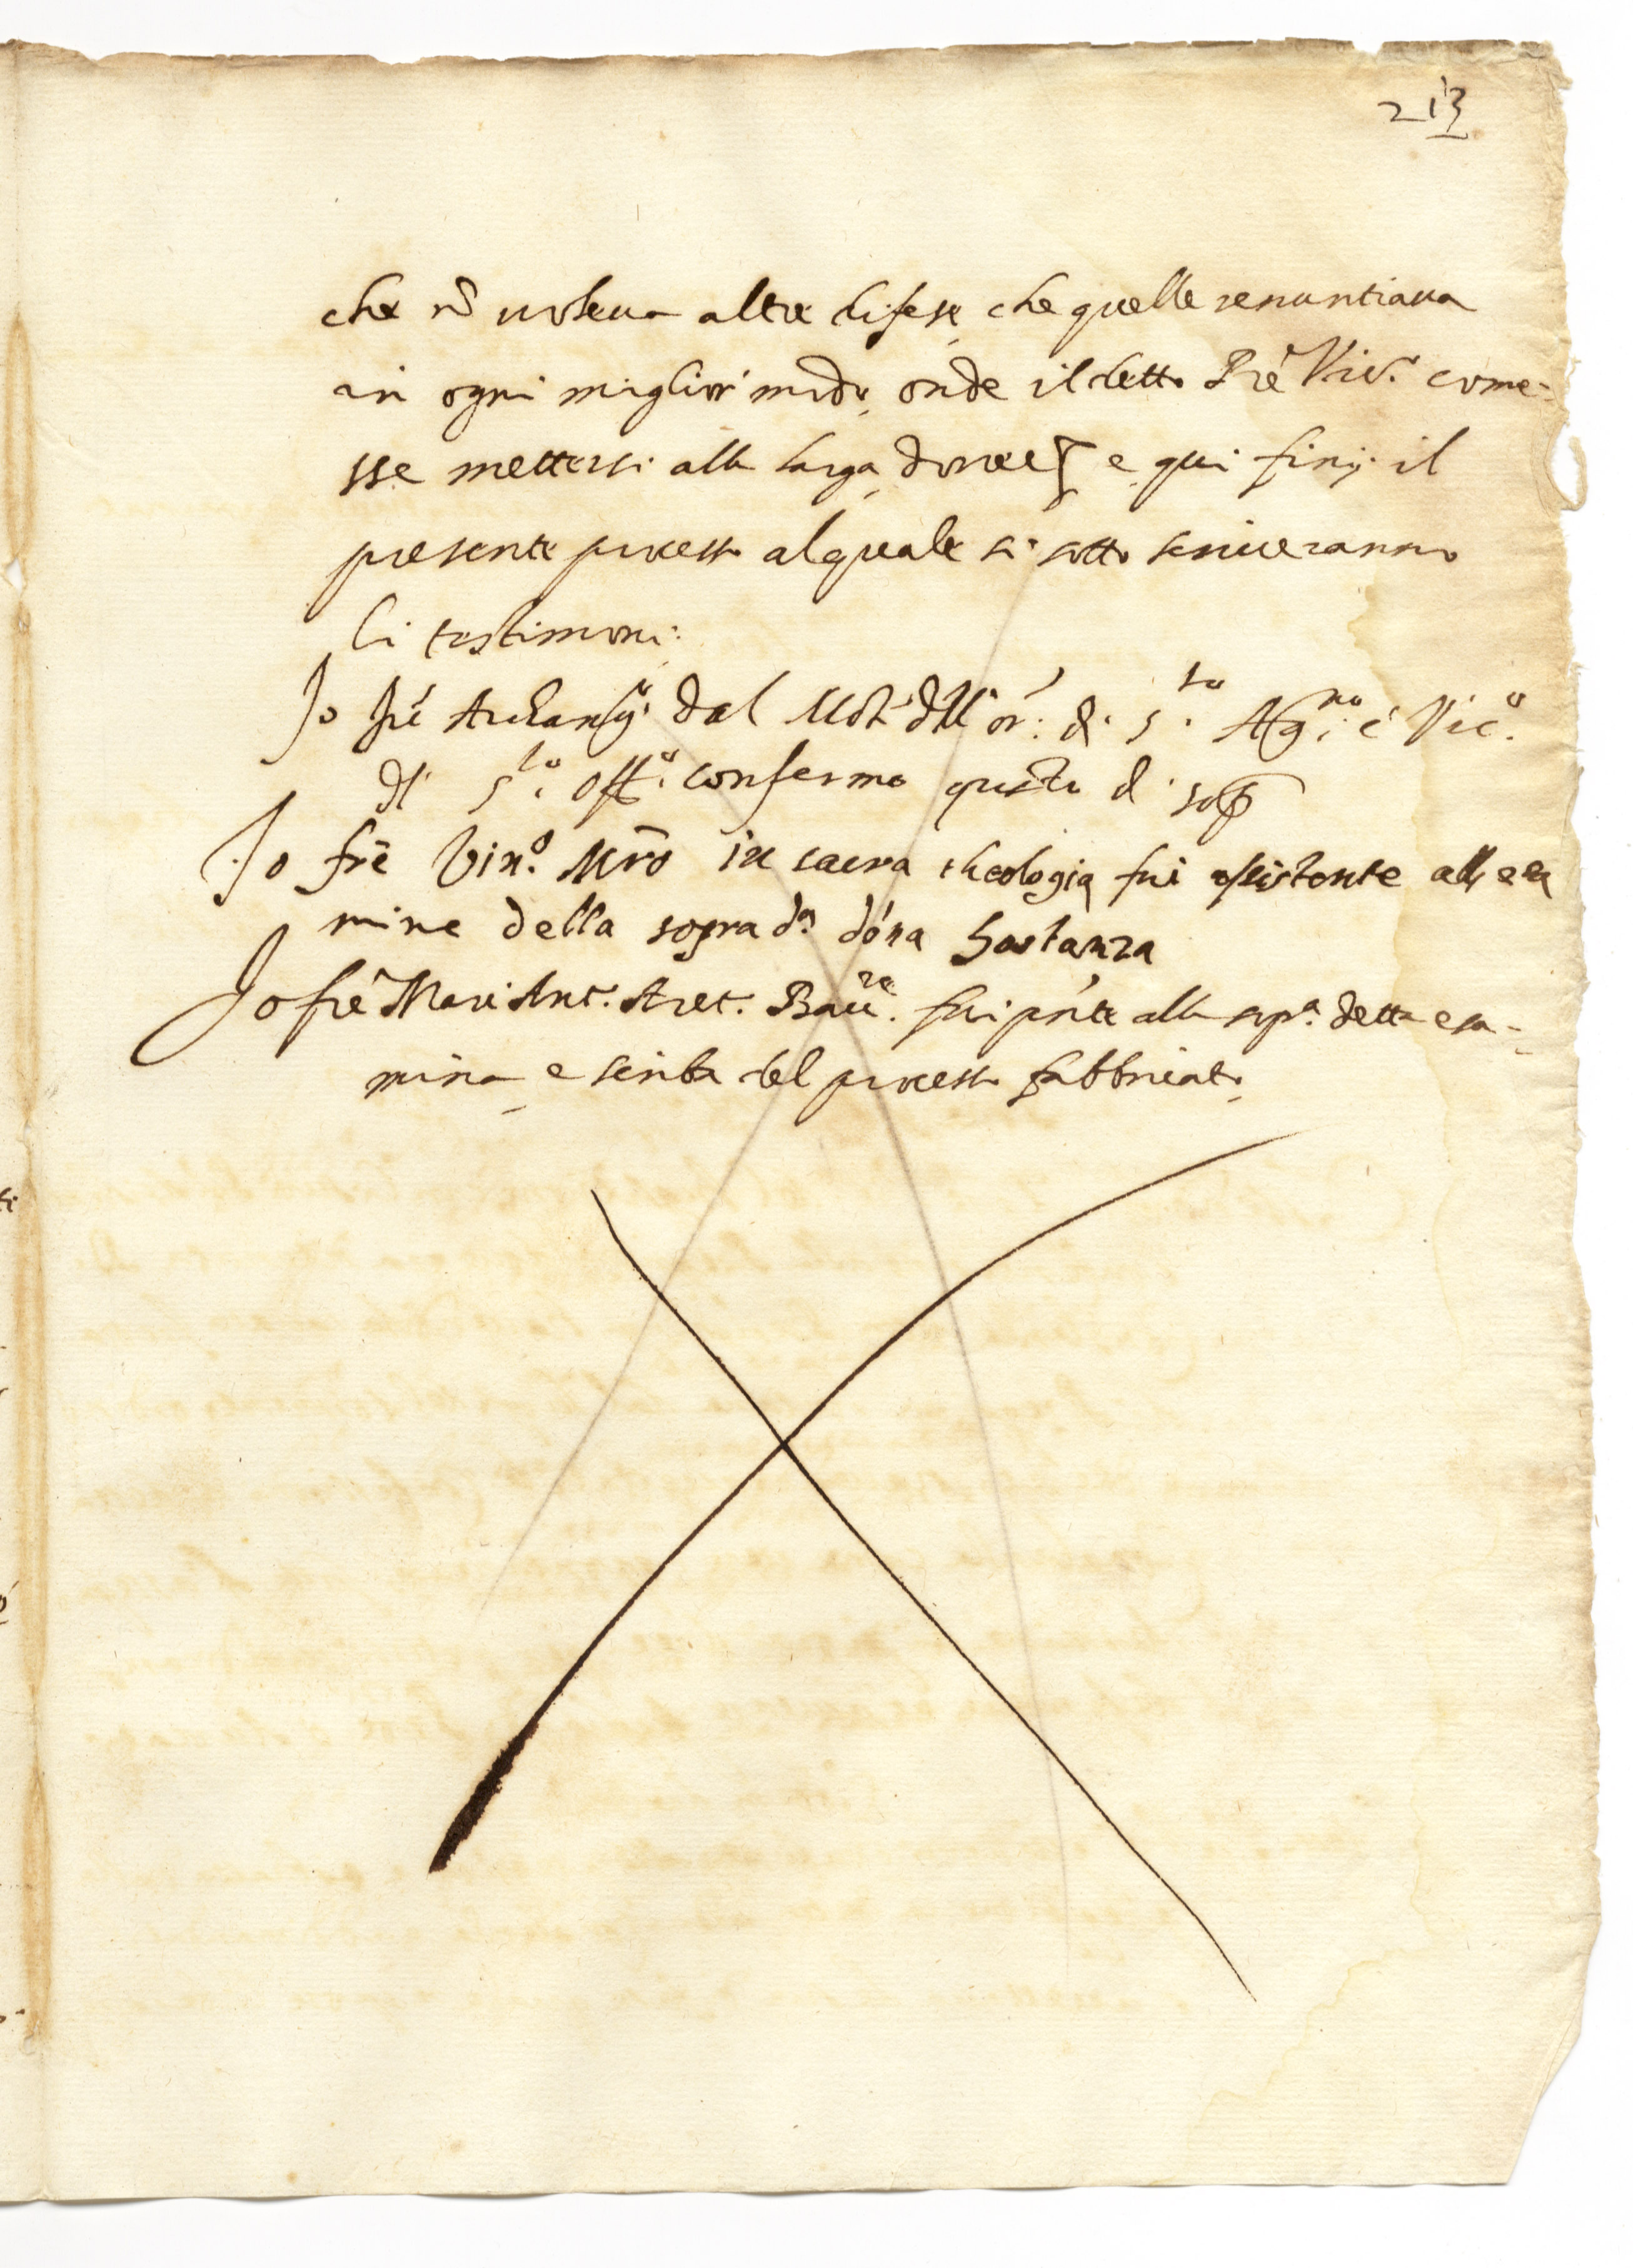 213
che nõ voleua altre difese, che quelle renuntiaua
in ogni miglior modo, onde il detto Pre Vic.º come-
sse mettersi alla larga, e qui finij il
presente processo al quale si sotto scriueranno
li testimoni:
Io fré dal dell or: di S.to Ag.no e Vic.º
di S.to Off.º confermo questo di sop
Io fré Vin.º Mrõ in sacra theologia fui assistente all esa
mine della soprad.a dóna Sostanza
Io fré Mari Ant. Aret. fui pnte alla sop.a detta esa-
mina, e scriba del processo fabbricato,